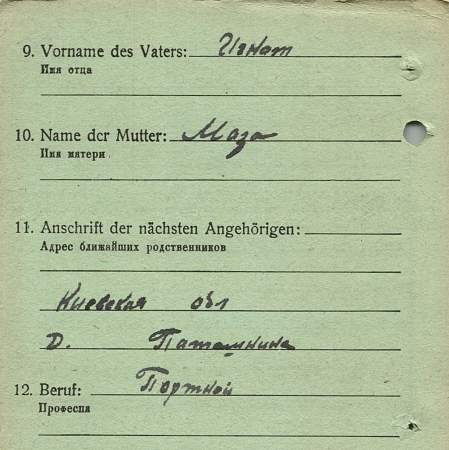 9. Vorname des Vaters: Игнат
Имя отца
10. Name der Mutter: Маза
Имя матери
11. Anschrift der nächsten Angehörigen:
Адрес ближайших родственников
Киевская обл
Д. Паташнина
12. Beruf: Портной
Професия